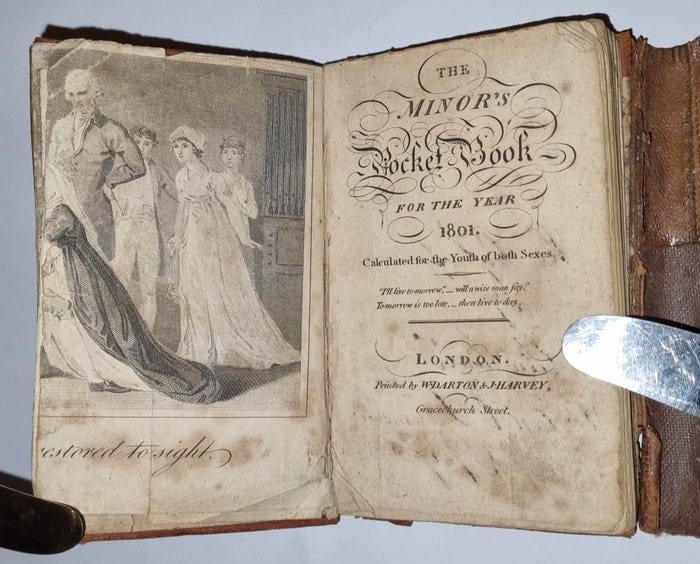 restored to sight.
THE
MINOR'S
Pocket Book
FOR THE YEAR
1801.
Calculated for the Youth of both Sexes.
"I'll live to morrow," — will a wise man say?
To morrow is too late, — then live to day.
LONDON.
Printed by W. DARTON & J. HARVEY,
Gracechurch Street.